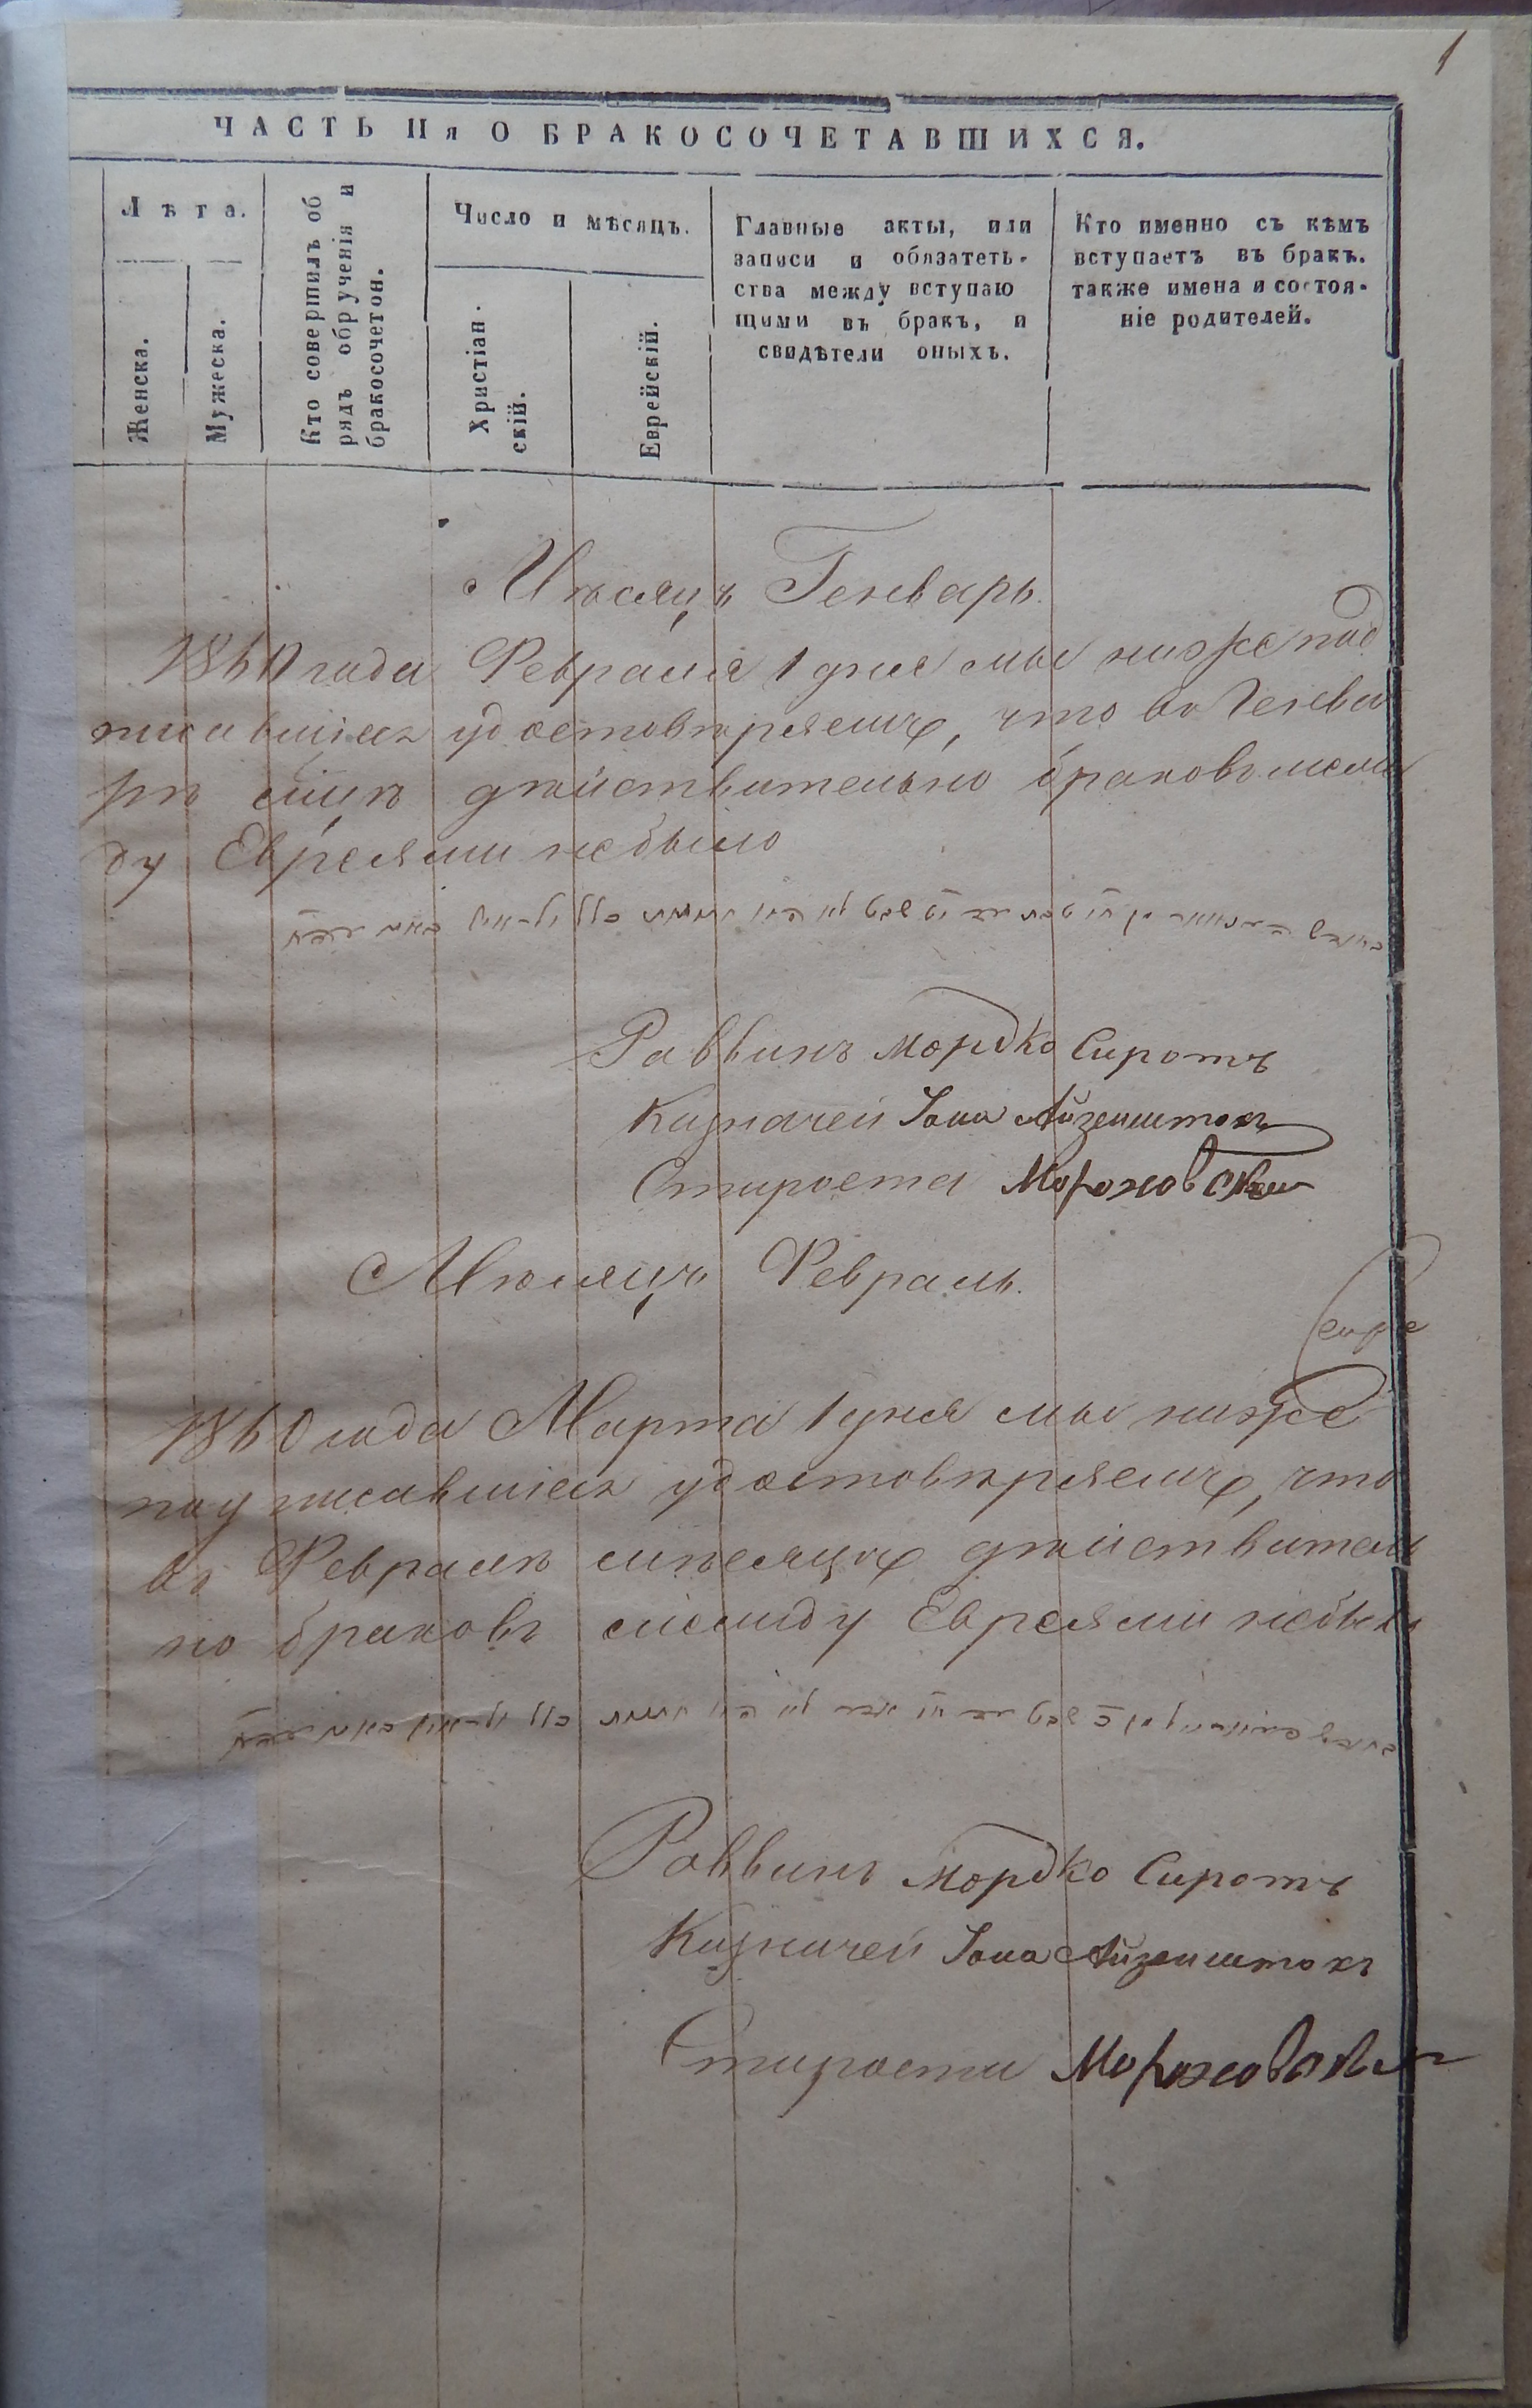 1
ЧАСТЬ IIя О БРАКОСОЧЕТАВШИХСЯ.
Лѣта.
Женска.
Мужеска.
Кто совершилъ об
рядъ обрученія и
бракосочетон.
Число и мѣсяцъ.
Христіан-
скій.
Еврейскій.
Главные акты, или
записи и обязатеть-
ства между вступаю
щими въ бракъ, и
свидѣтели оныхъ.
Кто именно съ кѣмъ
вступаетъ въ бракъ.
также имена и состоя-
ніе родителей.
Мѣсяцъ Генварь.
1860 года Февраля 1 дня мы ниже под
писавшіеся удостовѣряемъ, что въ Генва
рѣ мцѣ дѣйствительно браковъ меж
ду Евреями небыло
Раввинъ Мордко Сиротъ
Казначей Іона Айзенштокъ
Староста
Мѣсяцъ Февраль.
1860 года Марта 1 дня мы ниже
подписавшіеся удостовѣряемъ, что
въ Февралѣ мѣсяцѣ дѣйствитель
но браковъ между Евреями небыло
Раввинъ Мордко Сиротъ
Казначей Іона Айзенштокъ
Староста